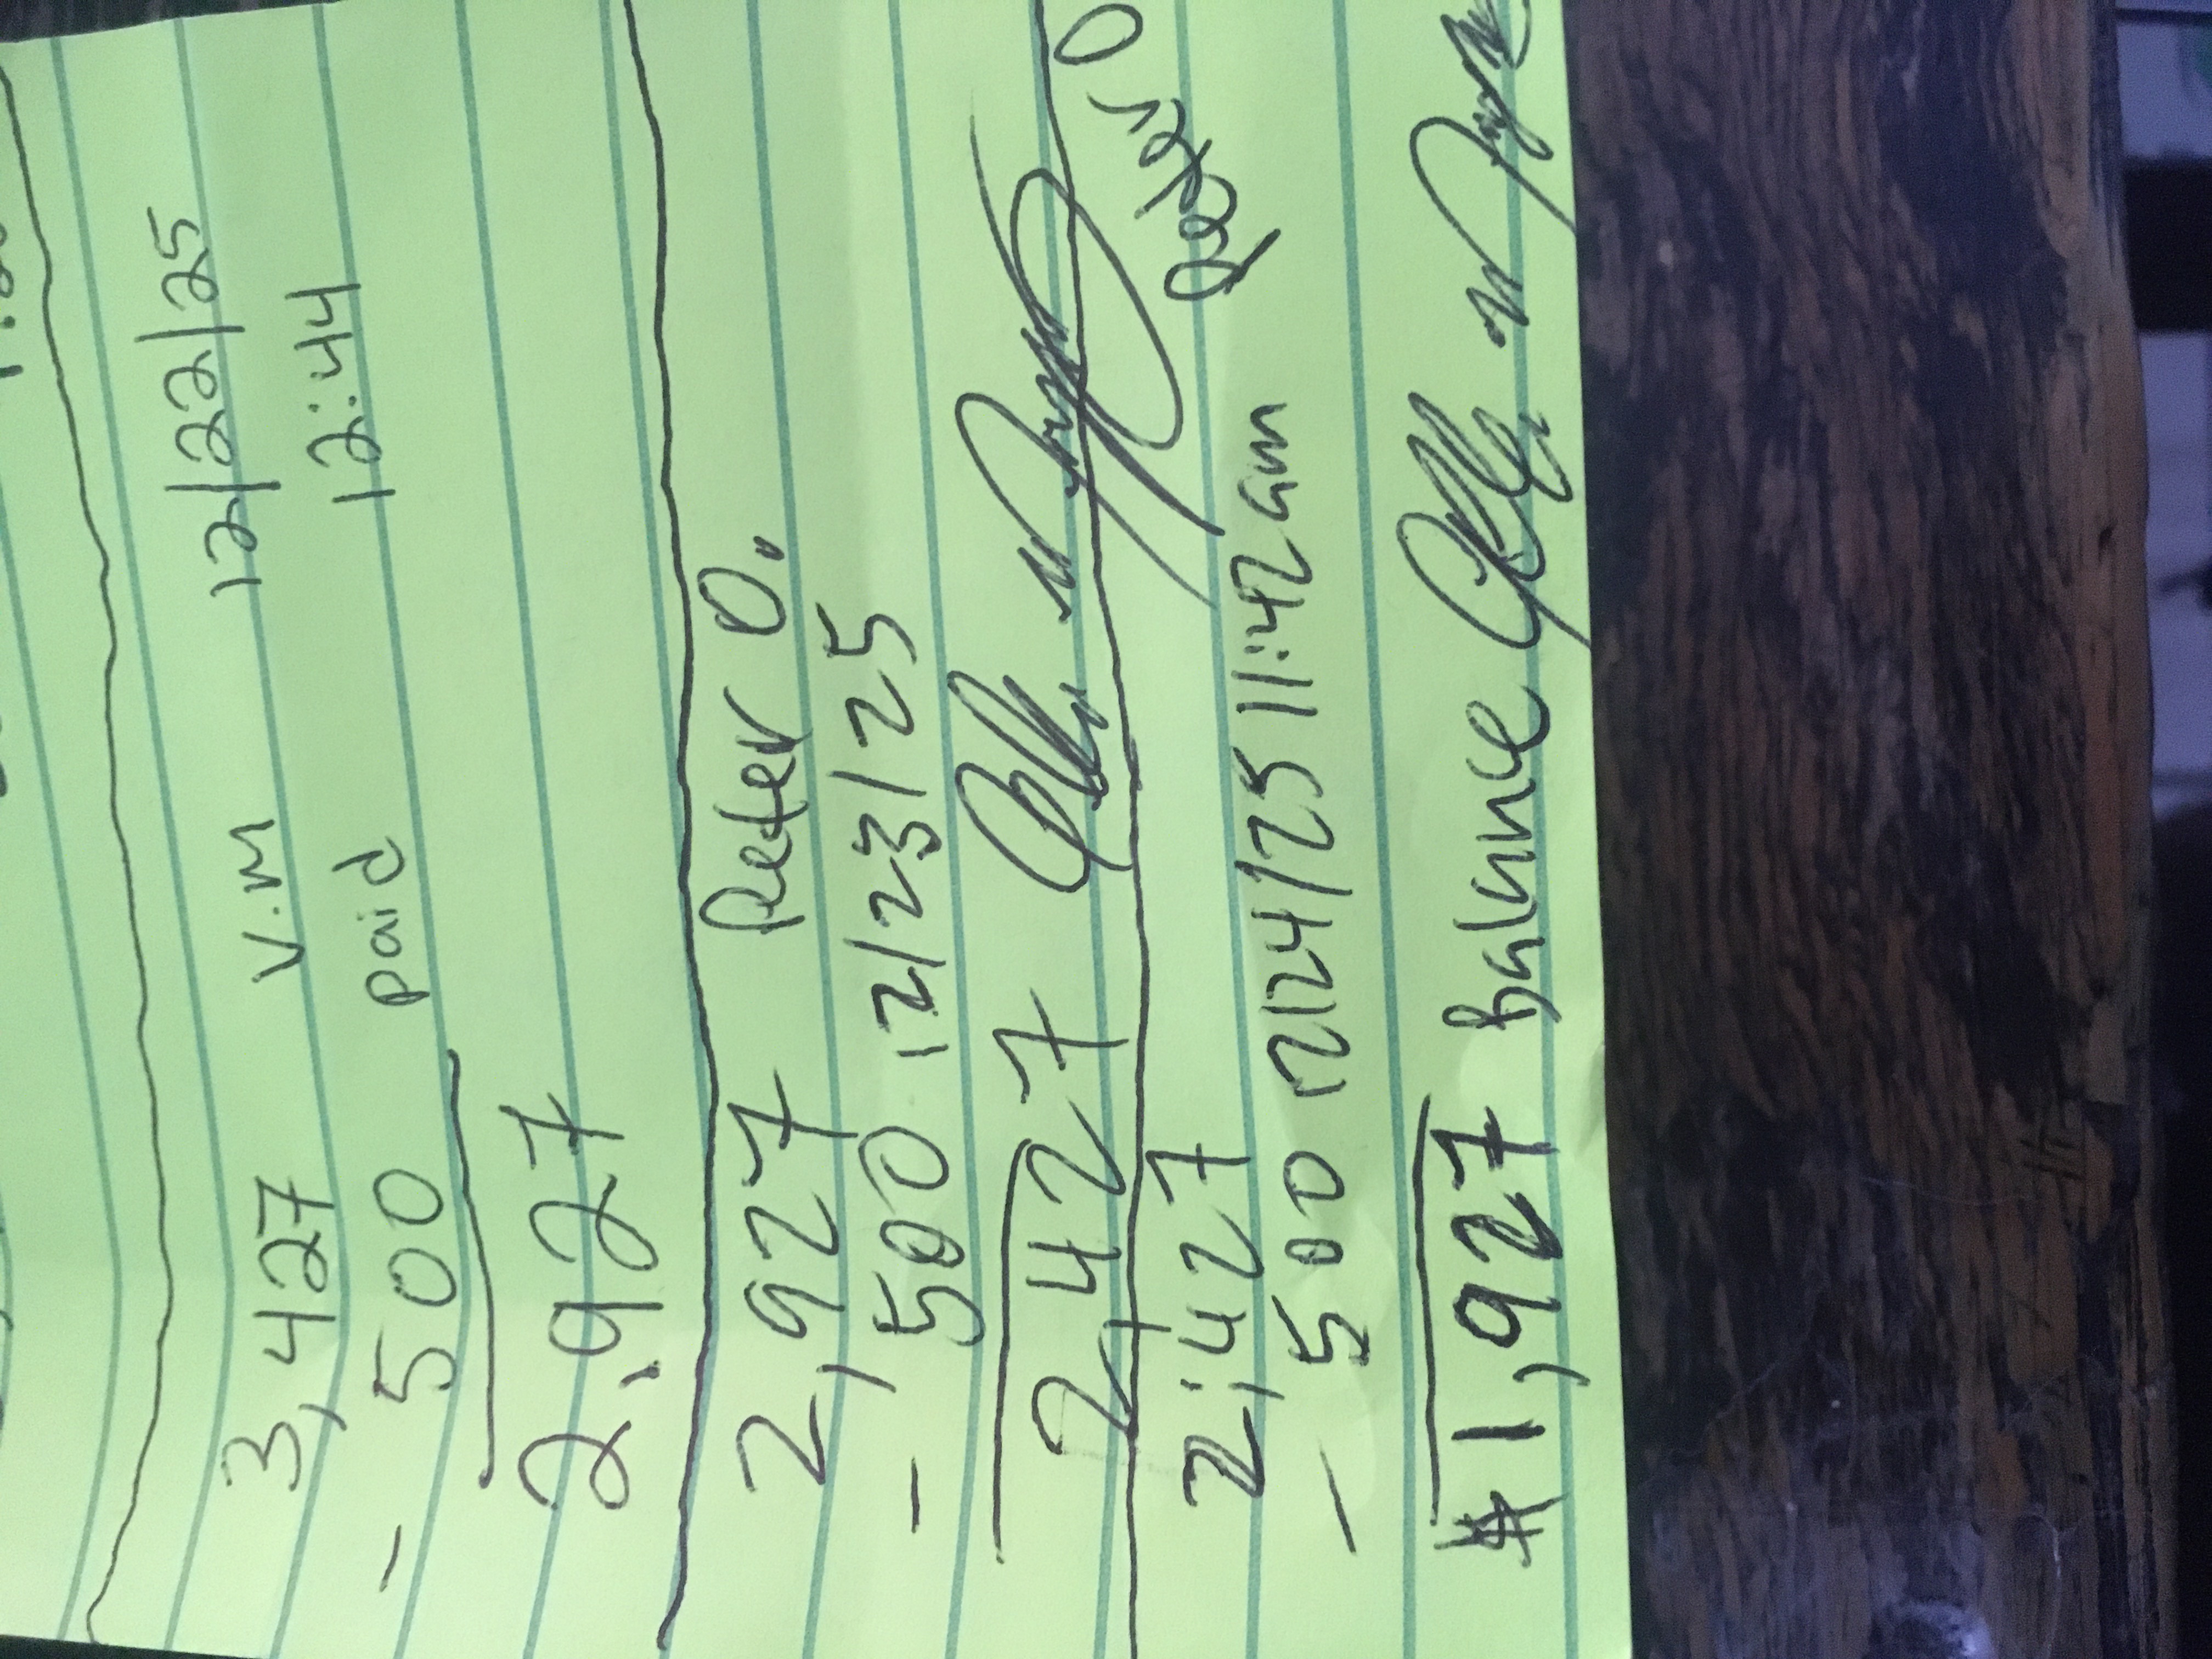 3,427 V.M 12/22/25
- 500 paid 12:44
2,927
2,927 Peter O.
- 500 12/23/25
2,427
Peter O
2,427
- 500 12/24/25 11:42am
$1,927 Balance